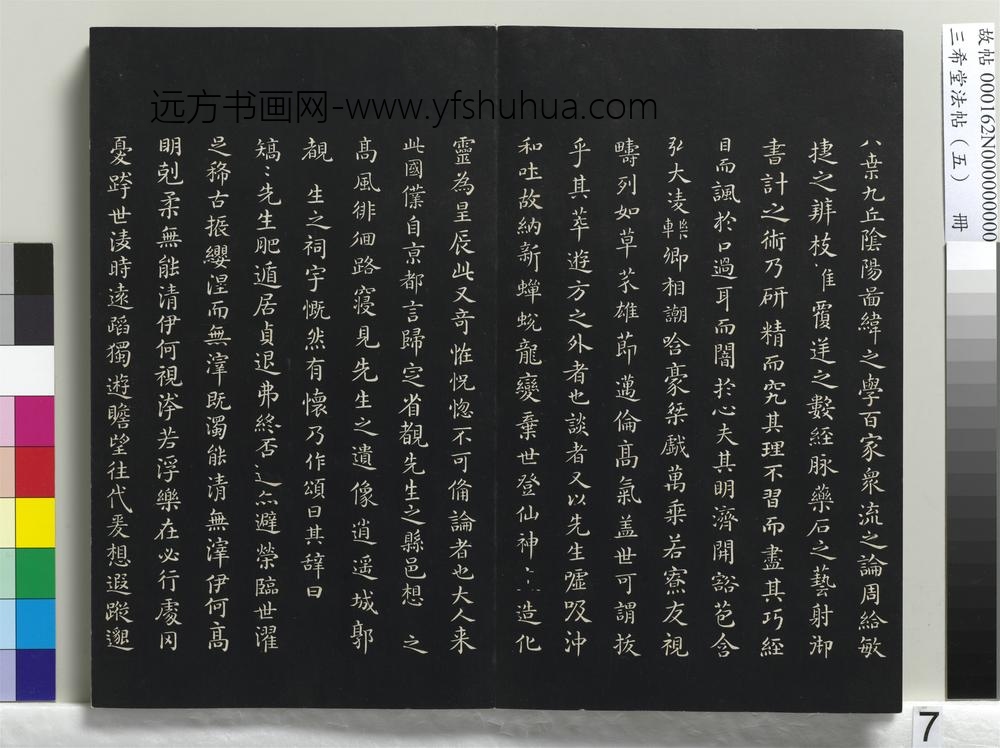 远方书画网-www.yfshuhua.com
故帖 000162N000000000
三希堂法帖（五） 冊
八索九丘陰陽啚緯之學百家衆流之論周給敏
捷之辨枝離覆逆之數經脉藥石之藝射御
書計之術乃研精而究其理不習而盡其巧經
目而諷於口過耳而闇於心夫其明濟開豁苞含
弘大淩轢卿相謿哈豪桀戱萬乘若寮友視
疇列如草芥雄節邁倫髙氣盖世可謂拔
乎其萃遊方之外者也談者又以先生噓吸沖
和吐故納新蟬蛻龍變棄世登仙神造化
靈為星辰此又奇恠怳惚不可俻論者也大人来
此國僕自京都言歸定省覩先生之縣邑想之
髙風徘佪路寝見先生之遺像逍遥城郭
覩生之祠宇慨然有懷乃作頌曰其辞曰
矯〻先生肥遁居貞退弗終否避榮臨世濯
足稀古振纓涅而無滓既濁能清無滓伊何髙
明剋柔無能清伊何視汙若浮樂在必行處冈
憂跨世淩時遠蹈獨遊瞻望往代爰想遐蹤邈
7